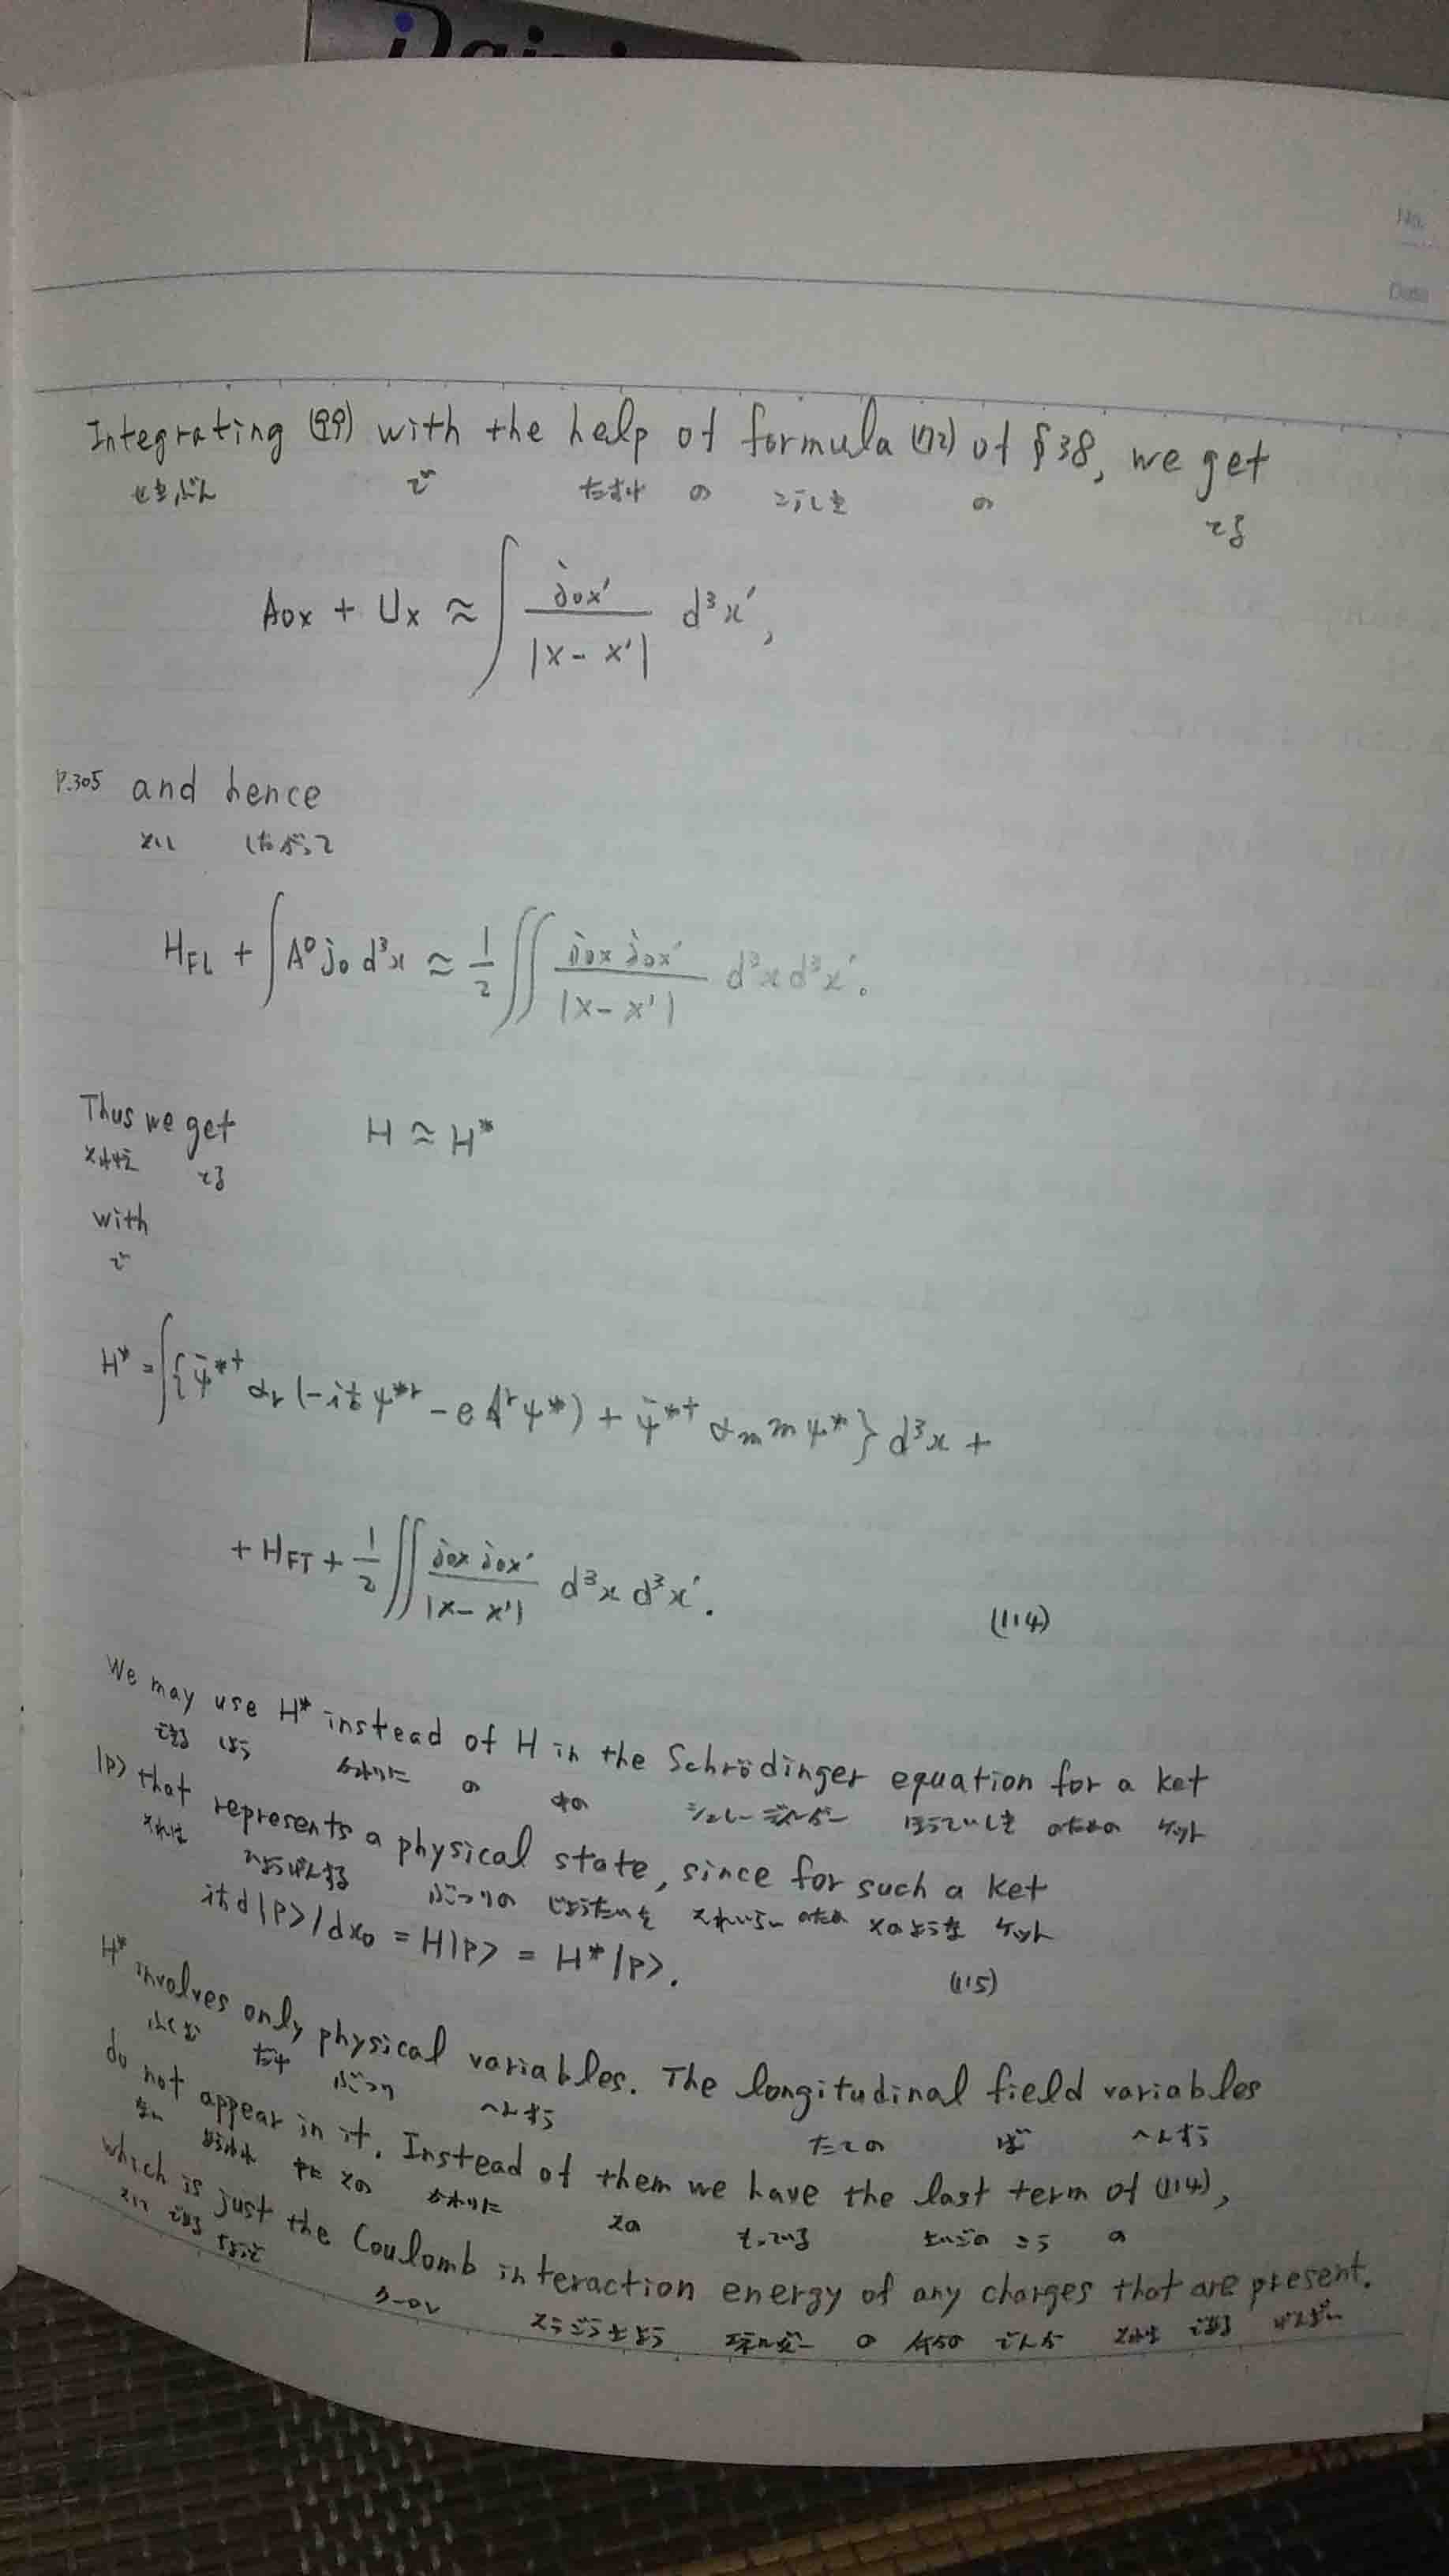 No.
Date
Integrating (99) with the help of formula (72) of §38, we get
せきぶん で たすけ の こうしき の とる
A0x + Ux ≈ ∫ j0x' / |x - x'| d³x',
P.305 and hence
そして したがって
HFL + ∫A⁰ j0 d³x ≈ 1/2 ∬ j0x j0x' / |x - x'| d³x d³x'.
Thus we get H ≈ H*
それゆえ とる
with
で
H* = ∫{ψ̄*† αr (-iħ ψ*r - e Aʳ ψ*) + ψ̄*† αm m ψ*} d³x +
+ HFT + 1/2 ∬ j0x j0x' / |x - x'| d³x d³x'. (114)
We may use H* instead of H in the Schrödinger equation for a ket
できる しよう かわりに の シュレーディンガー ほうていしき のための ケット
|P> that represents a physical state, since for such a ket
それは ひょうげんする ぶつりの じょうたいを それいらい のため そのような ケット
iħd|P>/dx0 = H|P> = H*|P>. (115)
H* involves only physical variables. The longitudinal field variables
ふくむ だけ ぶつり へんすう たての ば へんすう
do not appear in it. Instead of them we have the last term of (114),
ない あらわれ 中に その かわりに その もっている さいごの こう の
which is just the Coulomb interaction energy of any charges that are present.
である ちょうど クーロン そうごうさよう エネルギー の でんか である